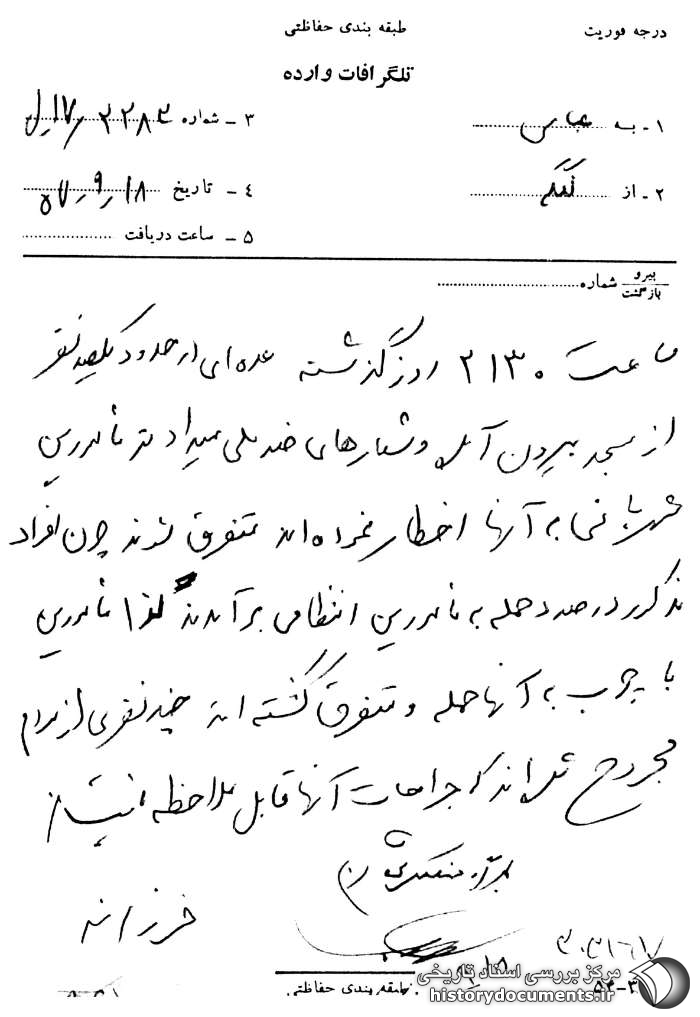 درجه فوریت
طبقه بندی حفاظتی
تلگرافات وارده
۱ - به عباس
۳ - شماره ۲۲۸۳ / ۱۷ ل
۲ - از
۴ - تاریخ ۱۸ ر ۹ ر ۵۷
۵ - ساعت دریافت
پیرو
بازگشت شماره
ساعت ۲۱۳۰ روز گذشته عده ای در حدود یکصد نفر
از مسجد بیرون آمده و شعارهای ضد ملی میدادند مأمورین
شهربانی به آنها اخطار نموده اند متفرق شوند چون افراد
مذکور در صدد حمله به مأمورین انتظامی برآمدند لذا مأمورین
با چوب به آنها حمله و متفرق گشته اند چند نفری از مردم
مجروح شده اند که جراحات آنها قابل ملاحظه نیست
فرزانه
طبقه بندی حفاظتی
۵۲-۳
مرکز بررسی اسناد تاریخی
historydocuments.ir